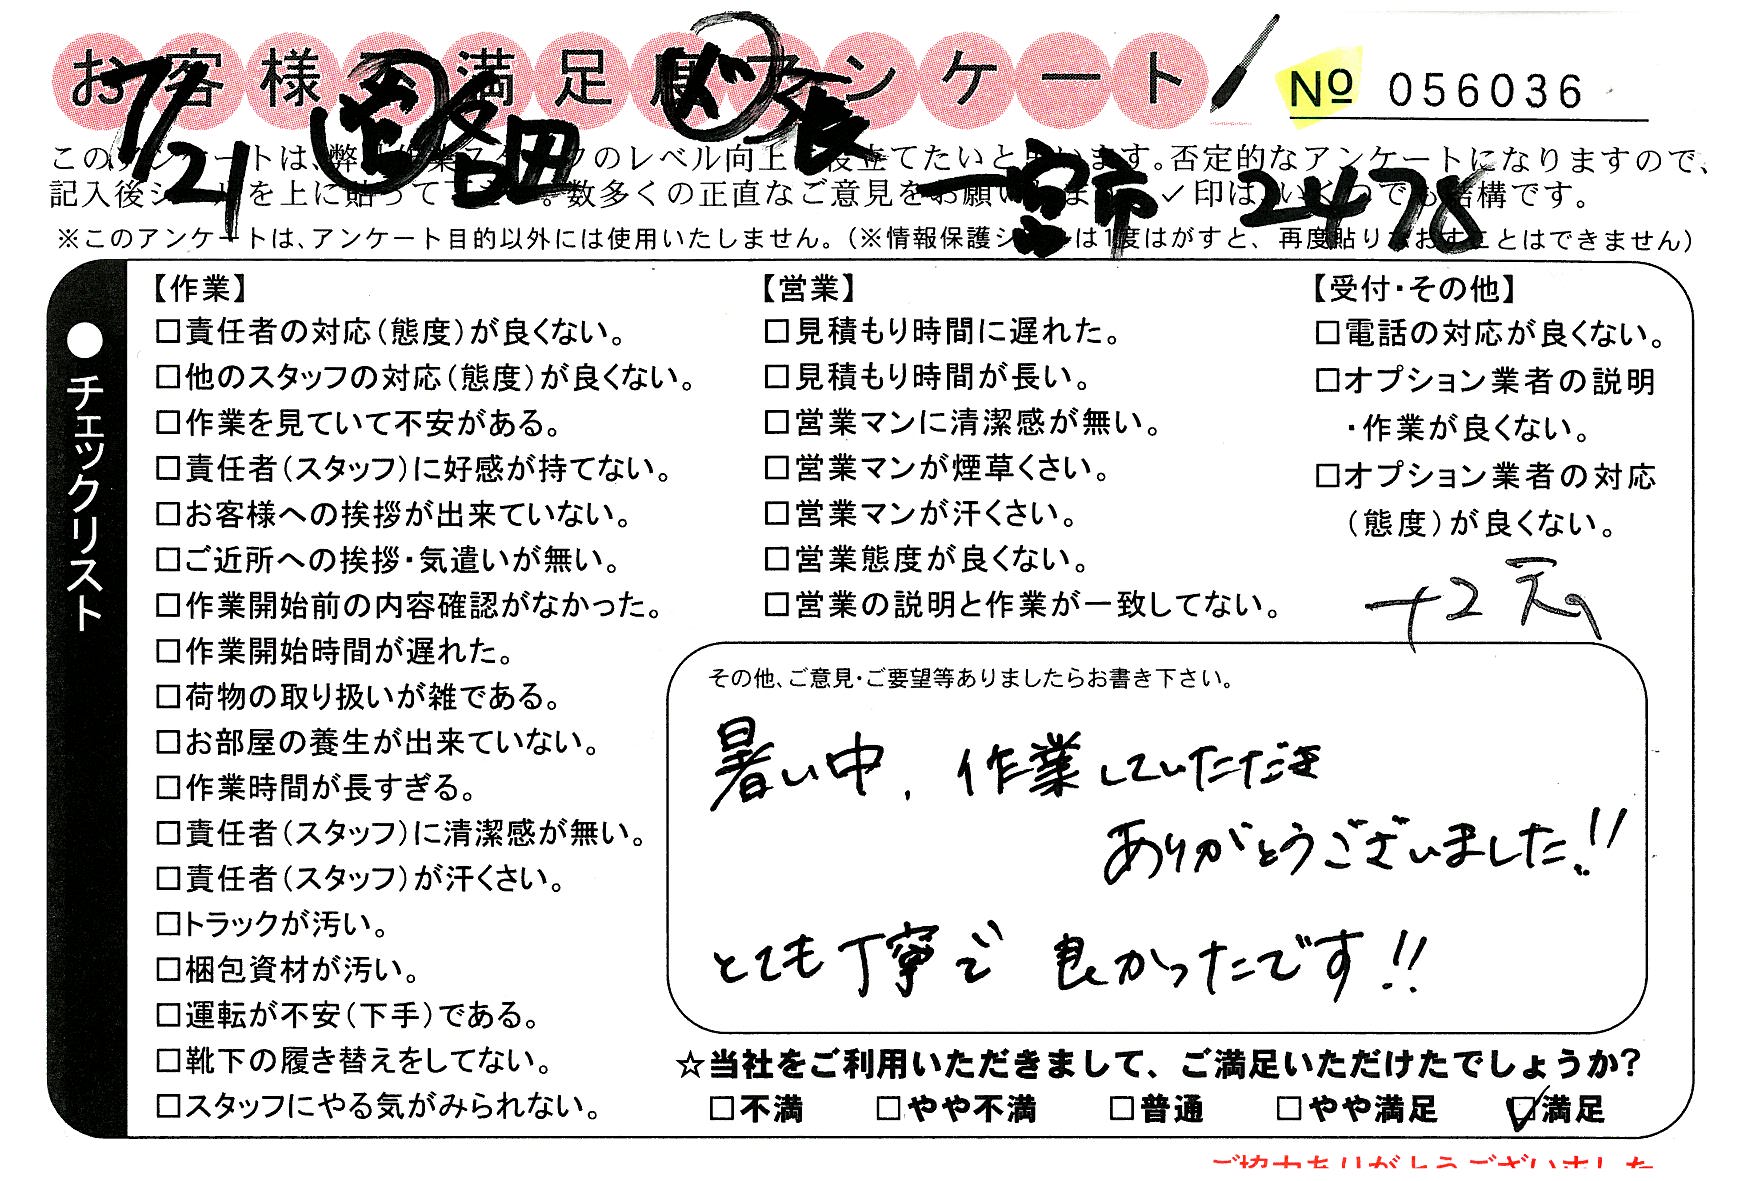 お客様満足度アンケート
№ 056036
7/21
長
一宮市 2478
このアンケートは、弊社作業スタッフのレベル向上に役立てたいと思います。否定的なアンケートになりますので、
記入後シールを上に貼って下さい。数多くの正直なご意見をお願いします。✓印はいくつでも結構です。
※このアンケートは、アンケート目的以外には使用いたしません。（※情報保護シールは1度はがすと、再度貼りなおすことはできません）
●チェックリスト
【作業】
□責任者の対応（態度）が良くない。
□他のスタッフの対応（態度）が良くない。
□作業を見ていて不安がある。
□責任者（スタッフ）に好感が持てない。
□お客様への挨拶が出来ていない。
□ご近所への挨拶・気遣いが無い。
□作業開始前の内容確認がなかった。
□作業開始時間が遅れた。
□荷物の取り扱いが雑である。
□お部屋の養生が出来ていない。
□作業時間が長すぎる。
□責任者（スタッフ）に清潔感が無い。
□責任者（スタッフ）が汗くさい。
□トラックが汚い。
□梱包資材が汚い。
□運転が不安（下手）である。
□靴下の履き替えをしてない。
□スタッフにやる気がみられない。
【営業】
□見積もり時間に遅れた。
□見積もり時間が長い。
□営業マンに清潔感が無い。
□営業マンが煙草くさい。
□営業マンが汗くさい。
□営業態度が良くない。
□営業の説明と作業が一致してない。
【受付・その他】
□電話の対応が良くない。
□オプション業者の説明
・作業が良くない。
□オプション業者の対応
（態度）が良くない。
+2
その他、ご意見・ご要望等ありましたらお書き下さい。
暑い中、作業していただき
ありがとうございました!!
とても丁寧で 良かったです!!
☆当社をご利用いただきまして、ご満足いただけたでしょうか？
□不満 □やや不満 □普通 □やや満足 ☑満足
ご協力ありがとうございました